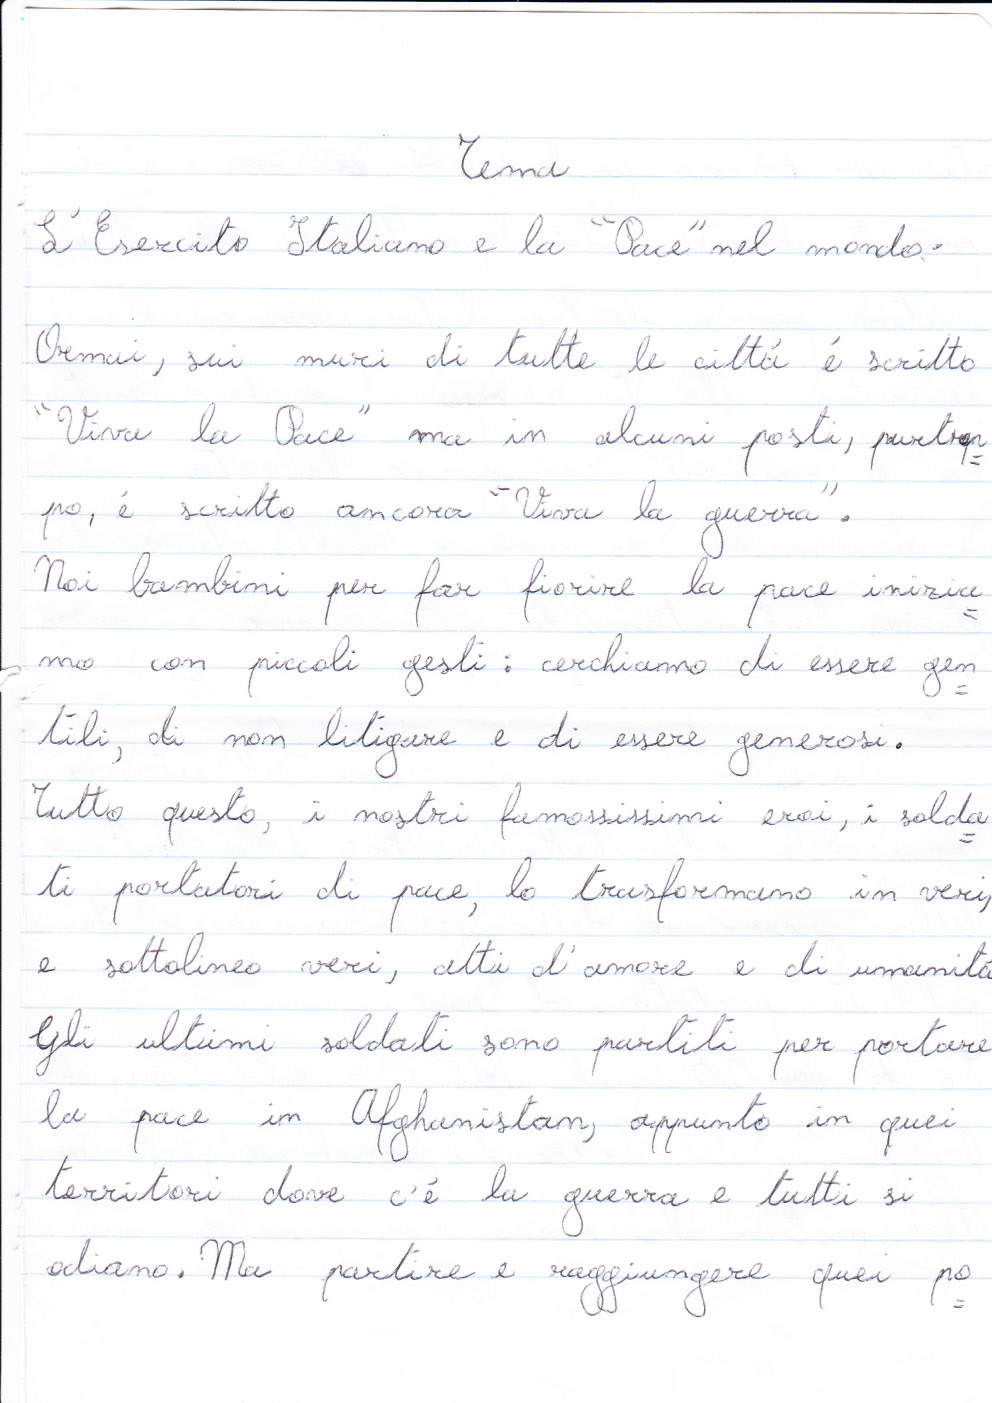 Tema
L'Esercito Italiano e la "Pace" nel mondo.
Ormai, sui muri di tutte le cittá é scritto
"Viva la Pace" ma in alcuni posti, purtrop=
po, é scritto ancora "Viva la guerra".
Noi bambini per far fiorire la pace inizia=
mo con piccoli gesti: cerchiamo di essere gen=
tili, di non litigare e di essere generosi.
Tutto questo, i nostri famossissimi eroi, i solda=
ti portatori di pace, lo trasformano in veri,
e sottolineo veri, atti d'amore e di umanitá
Gli ultimi soldati sono partiti per portare
la pace in Afghanistan, appunto in quei
territori dove c'é la guerra e tutti si
odiano. Ma partire e raggiungere quei po=